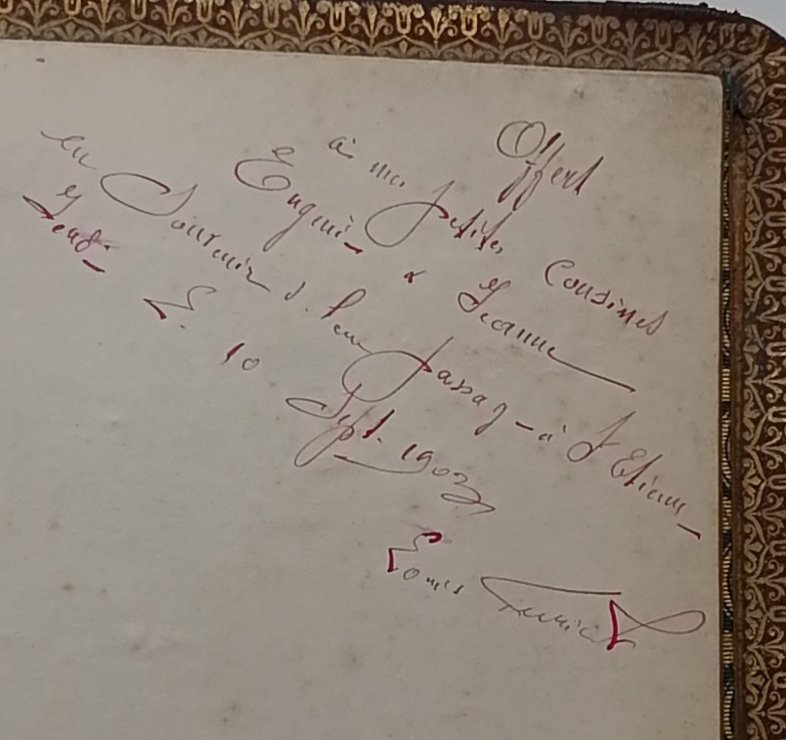 Offert
à mes petites Cousines
Eugénie & Jeanne
en Souvenir de leur passage à St Etienne
Jeudi Le 10 Sept. 1903
Louis